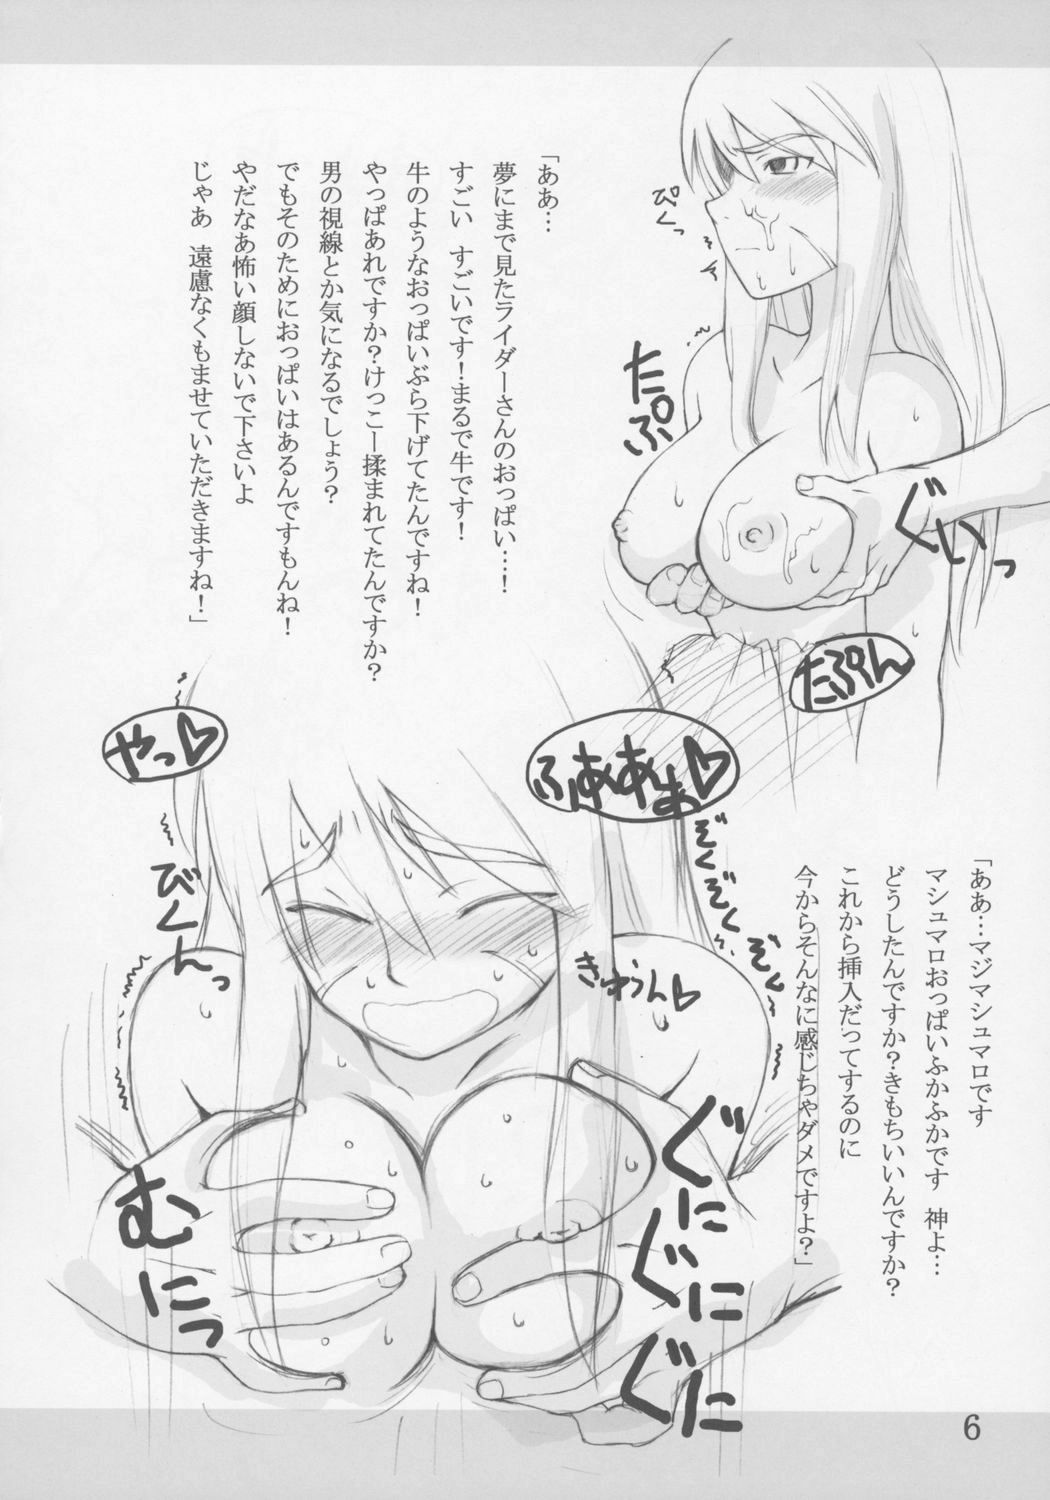 「ああ…
夢にまで見たライダーさんのおっぱい…！
すごい すごいです！まるで牛です！
牛のようなおっぱいぶら下げてたんですね！
やっぱあれですか？けっこー揉まれてたんですか？
男の視線とか気になるでしょう？
でもそのためにおっぱいはあるんですもんね！
やだなあ怖い顔しないで下さいよ
じゃあ 遠慮なくもませていただきますね！」
ぴくっ
たぷ
ぐいっ
たぷん
やっ♡
ふああぁんまぁ♡
ぞくぞくぞくぞくっ
びくんっ
きゅうん♡
むにっ
ぐにぐにぐに
「ああ…マジマシュマロです
マシュマロおっぱいふかふかです 神よ…
どうしたんですか？きもちいいんですか？
これから挿入だってするのに
今からそんなに感じちゃダメですよ？」
6